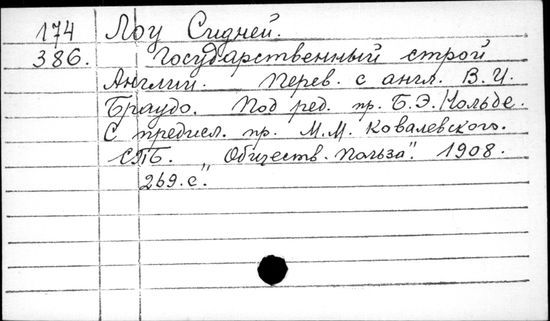 174 Лоу Сидней.
386. Государственный строй
Англии. Перев. с англ. В. И.
Браудо. Под ред. пр. Б. Э. Нольде.
С предисл. пр. М. М. Ковалевского.
СПБ. „Обществ. Польза". 1908.
269. с.